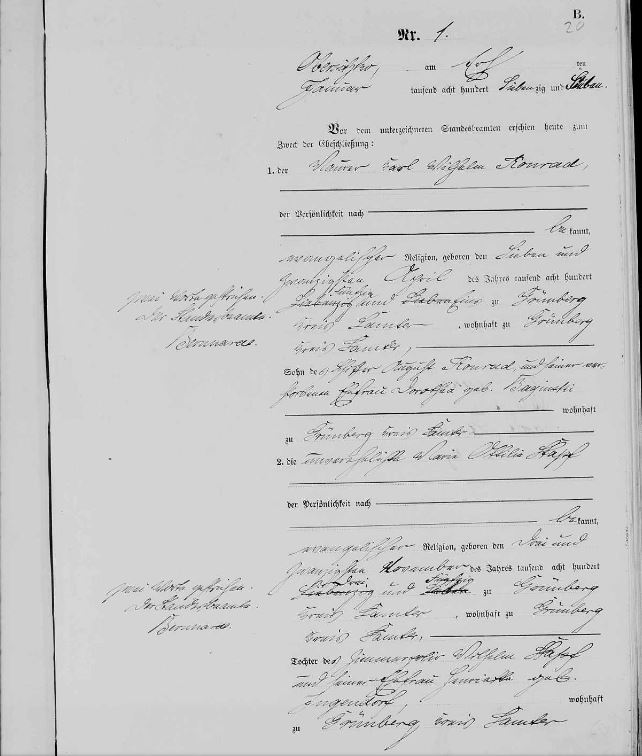 B.
20
Nr. 1.
Obersitzko, am Elf ten
Januar tausend acht hundert Siebenzig und Sieben.
Vor dem unterzeichneten Standesbeamten erschien heute zum
Zweck der Eheschließung:
1. der Maurer Carl Wilhelm Konrad,
der Persönlichkeit nach
be kannt,
evangelischer Religion, geboren den Sieben und
zwanzigsten April des Jahres tausend acht hundert
Fünfzig
und zu Grünberg
Kreis Samter, wohnhaft zu Grünberg
Kreis Samter,
zwei Worte gestrichen.
Der Standesbeamte.
Sohn des August Konrad, und seiner ver-
storbenen Ehefrau Dorothea geb.
wohnhaft
zu Grünberg Kreis Samter
2. die unverehelichte Marie Ottilie
der Persönlichkeit nach
be kannt,
evangelischer Religion, geboren den Drei und
zwanzigsten November des Jahres tausend acht hundert
Drei Fünfzig
und zu Grünberg
Kreis Samter, wohnhaft zu Grünberg
Kreis Samter,
zwei Worte gestrichen.
Der Standesbeamte.
Tochter des Wilhelm
und seiner Ehefrau Henriette geb.
wohnhaft
zu Grünberg Kreis Samter